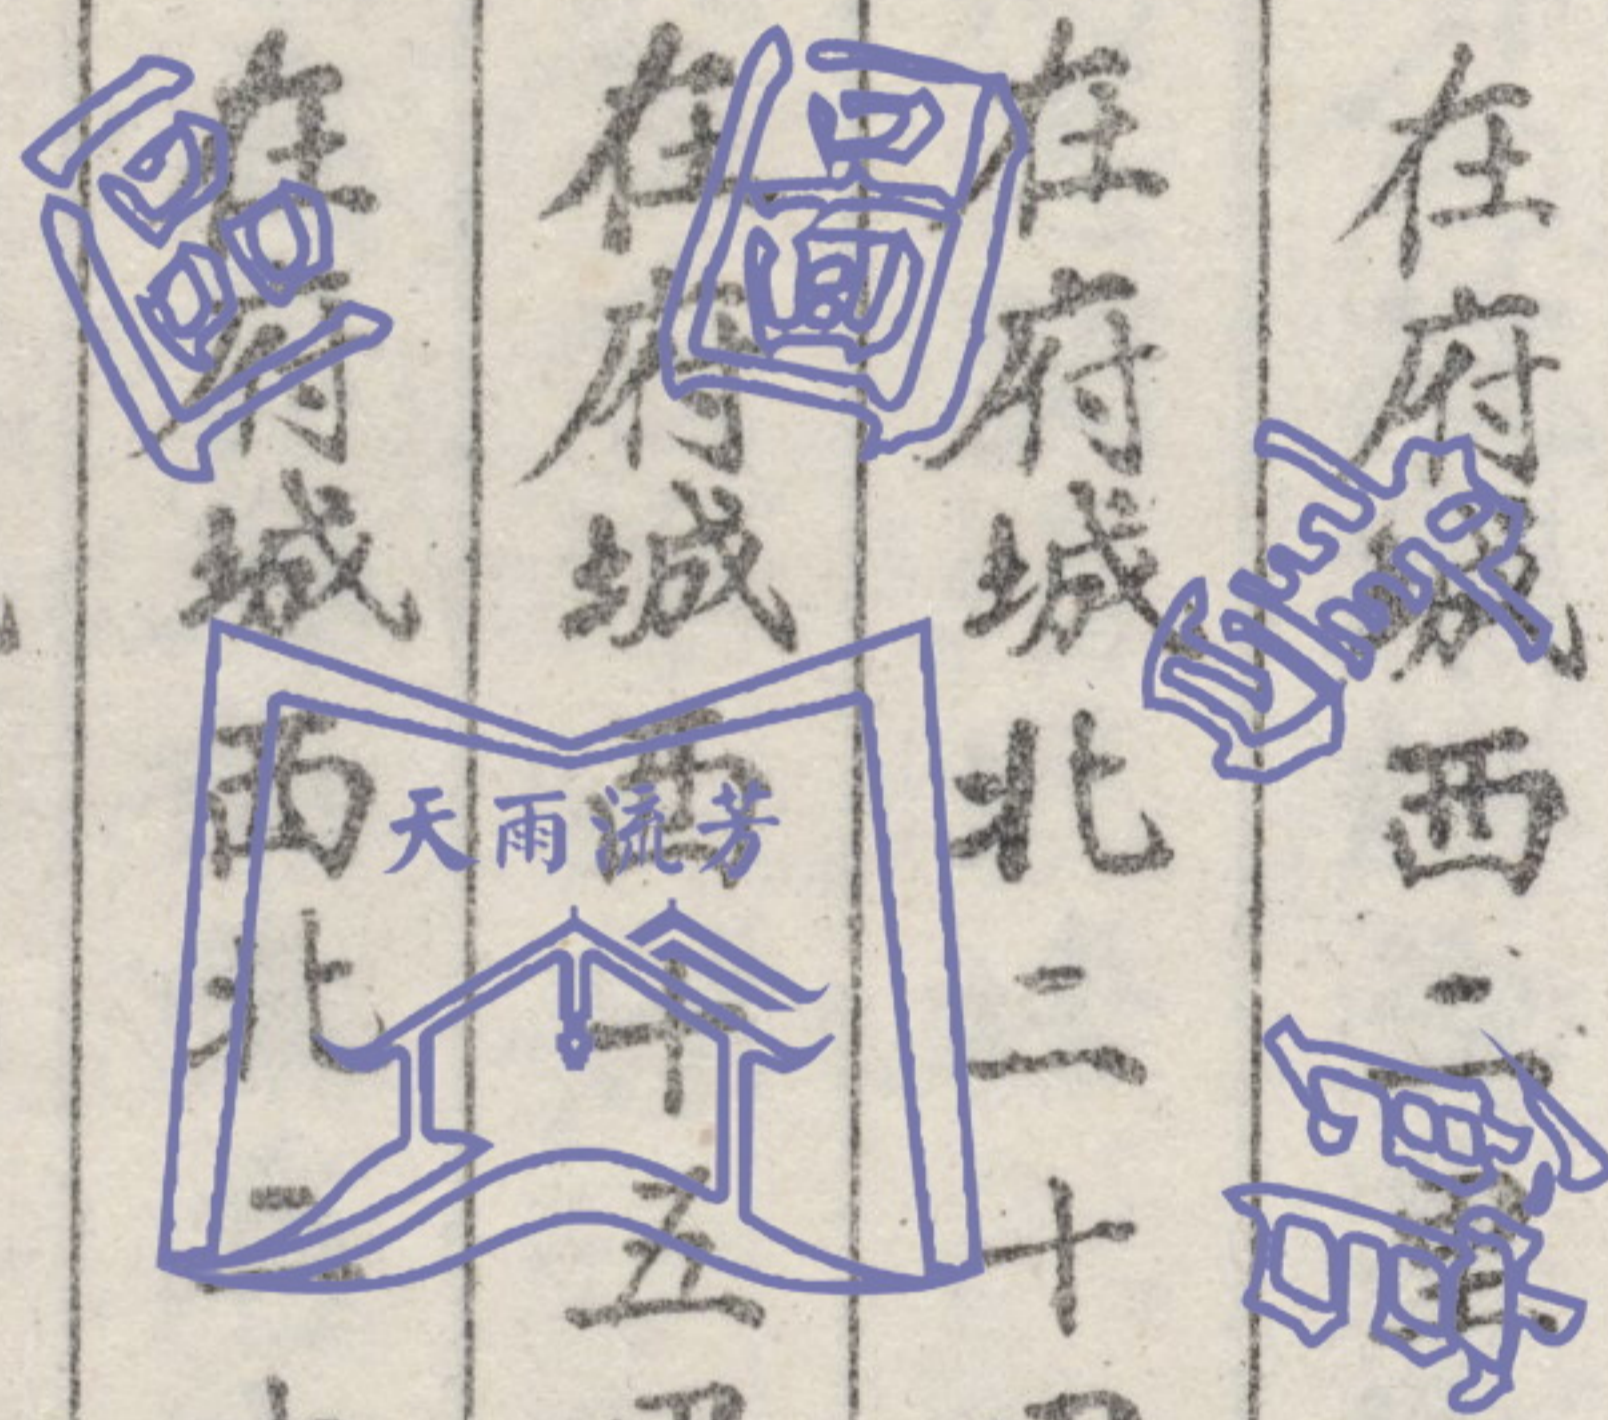 在府城西二
在府城北二十
在府城西十五
在府城西北二
天雨流芳
區
圖
書